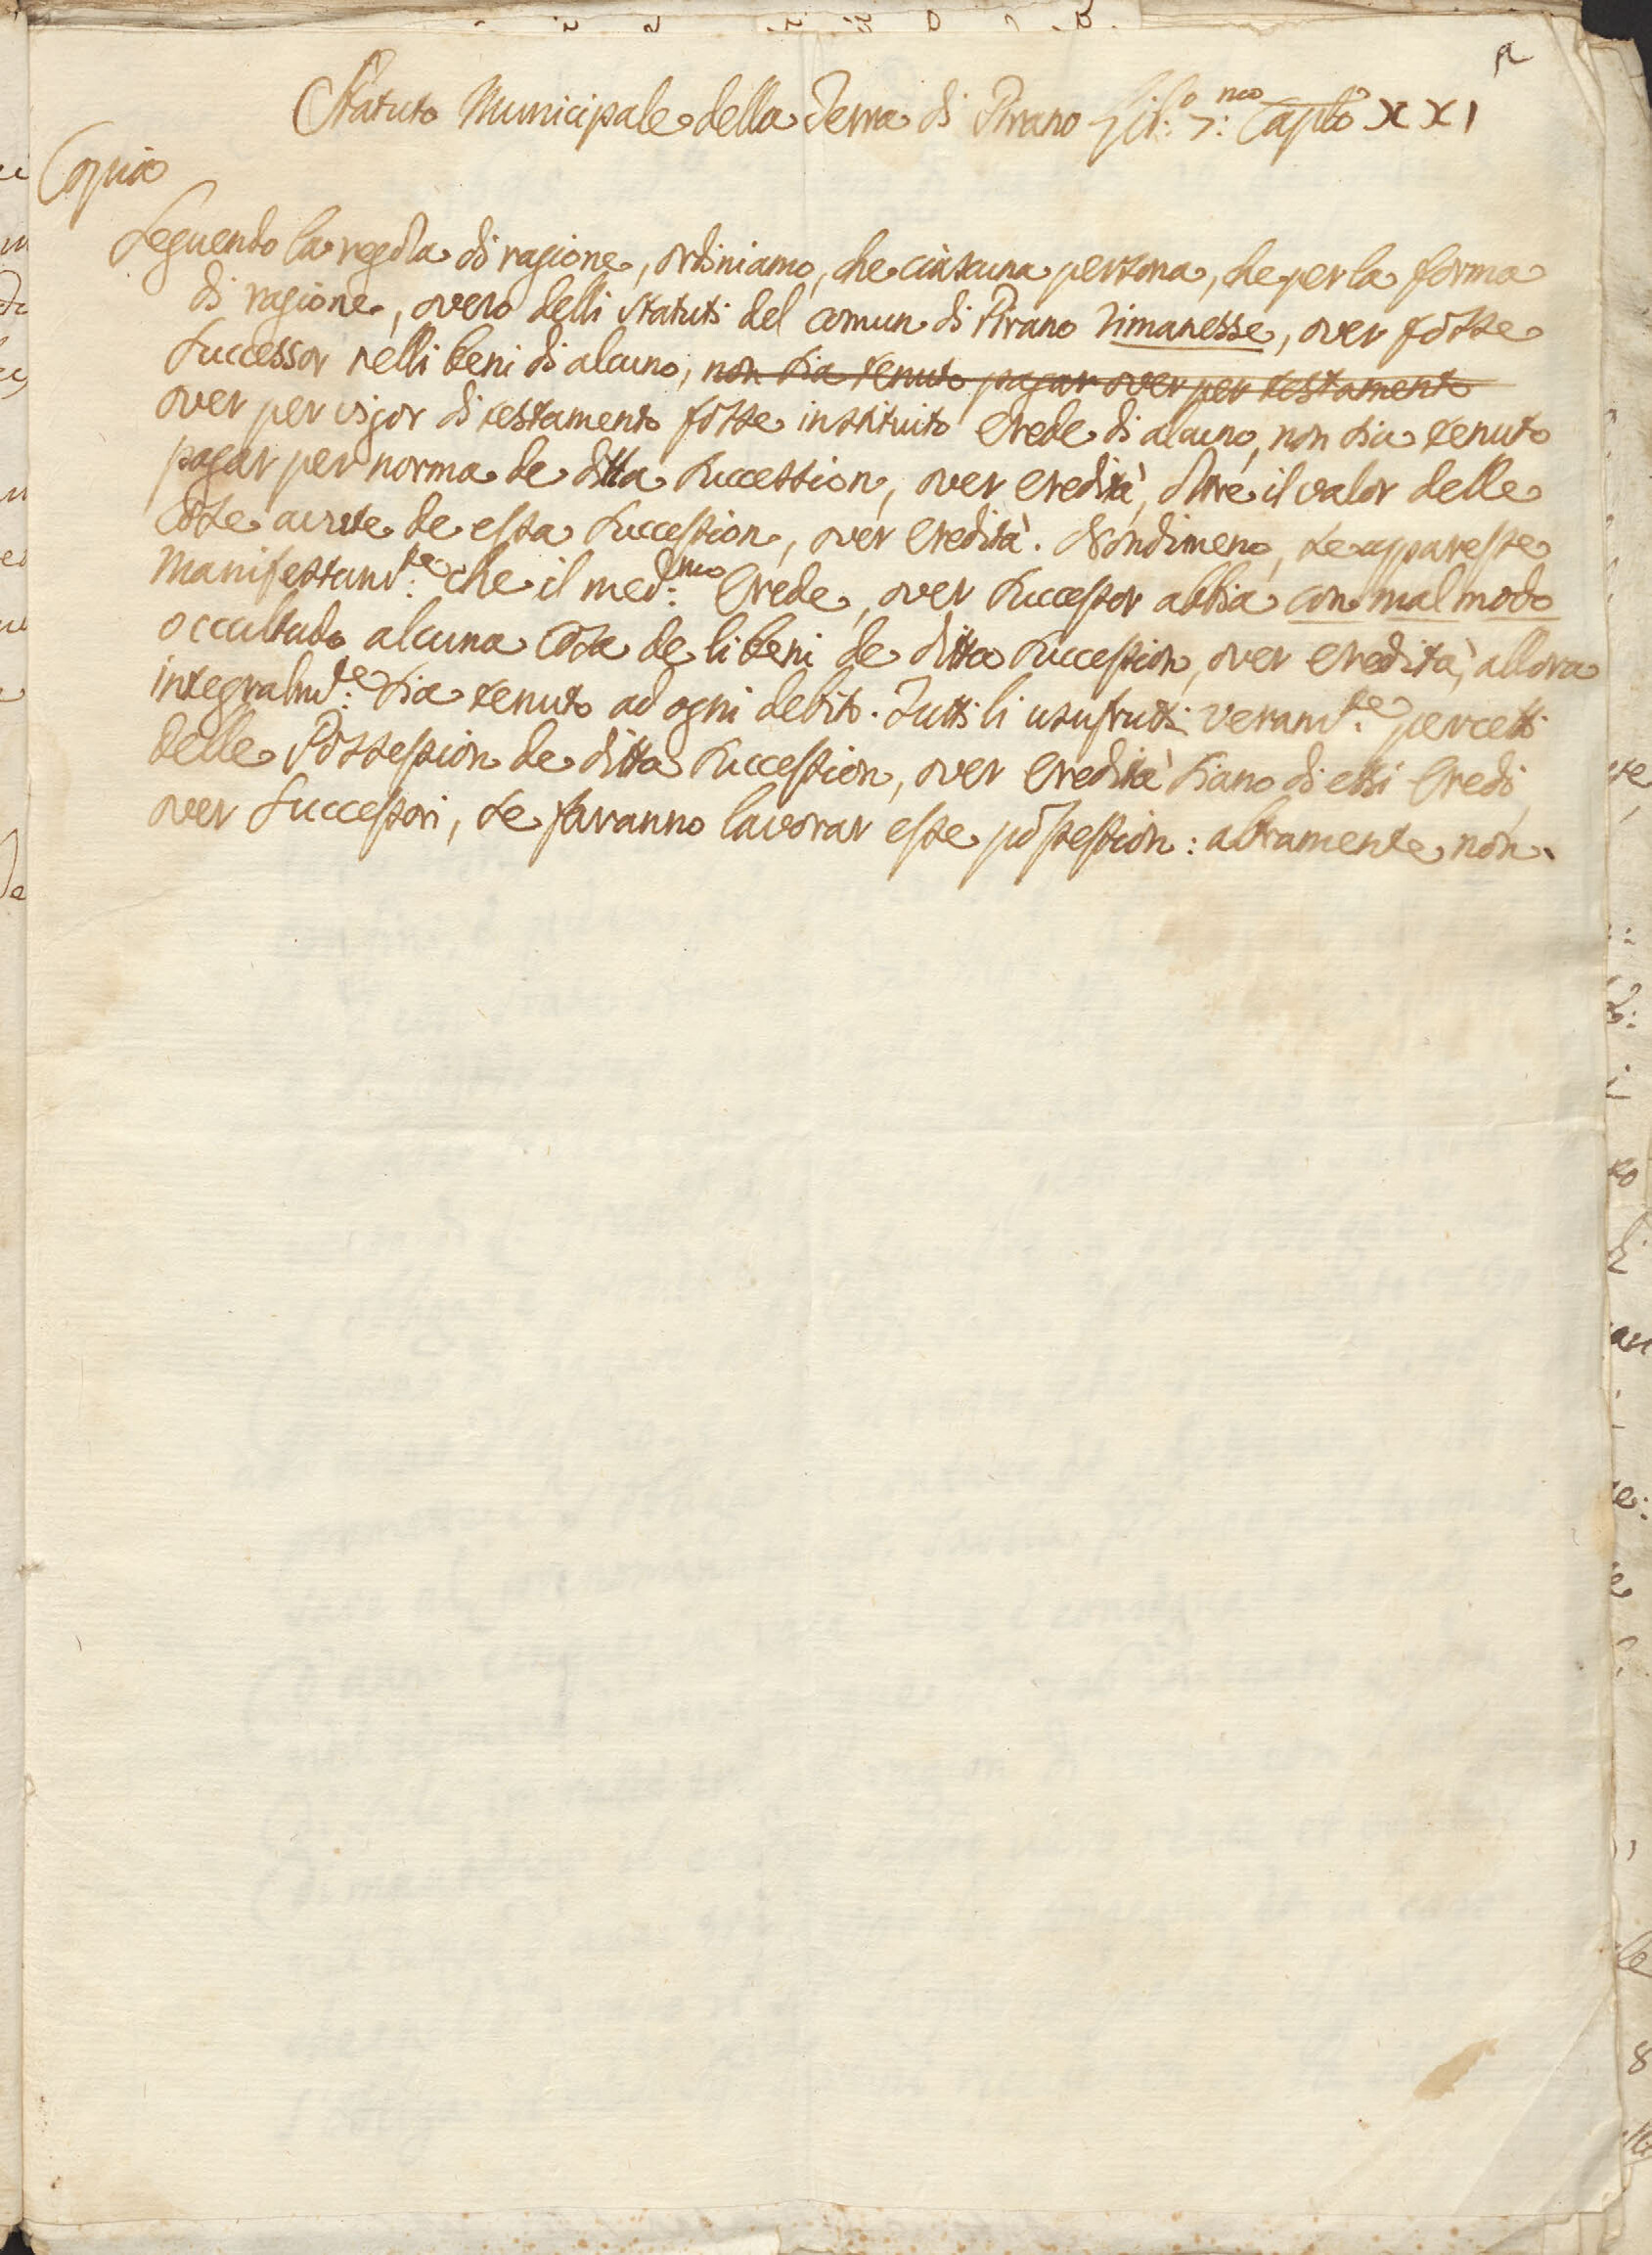 Statuto Municipale della Terra di Pirano Lib.o 7:mo Caplo XXI
Copia
Seguendo la regola di ragione, ordiniamo, che ciascuna persona, che per la forma
di ragione, overo delli Statuti del comun di Pirano rimanesse, over fosse
Successor nelli beni di alcuno, non sia tenuto pagar over per testamento
over per vigor di testamento fosse instituito Erede di alcuno, non sia tenuto
pagar per norma de ditta Succession, over eredità, oltre il valor delle
Cose avute de essa Succession, over Eredità. Nondimeno, se apparesse
Manifestam:te che il med:mo Erede, over Successor abbia con mal modo
occultado alcuna Cosa de li beni de ditta Succession, over eredità, allora
integralm:te sia tenuto ad ogni debito. Tutti li usufrutti veram:te percetti
delle Possession de ditta Succession, over Eredità siano di essi Eredi,
over Successori, se faranno lavorar esse possession: altramente non.